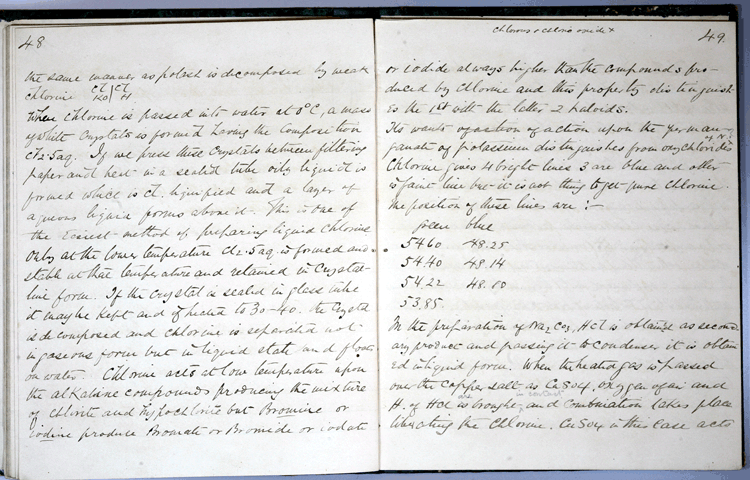 48
the same manner as potash is decomposed by weak
chlorine Cl | Cl
KO | H.
When chlorine is passed into water at 0°C, a mass
of white crystals is formed having the composition
Cl2 5aq. If we press these crystals between filtering
paper and heat in a sealed tube oily liquid is
formed which is cl. liquified and a layer of
aqueous liquid forms above it. This is one of
the easiest method of preparing liquid chlorine
only at the lower temperature Cl2. 5aq. is formed and
stable at that temperature and retained in crystal-
line form. If the crystal is sealed in glass tube
it may be kept and if heated to 30-40. the crystal
is decomposed and chlorine is separated not
in gaseous form but in liquid state and floats
on water. Chlorine acts at low temperature upon
the alkaline compounds producing the mixture
of chlorite and hypochlorite but Bromine or
iodine produce Bromate or Bromide or iodate
chlorous & chloric oxide +
49.
or iodide always higher than the compounds pro-
duced by chlorine and this property distinguish-
es the 1st with the latter 2 haloids.
Its want of action upon the perman-
ganate of potassium distinguishes from oxychlorides
of N.
Chlorine gives 4 bright lines 3 are blue and other
is faint line but it is not thing to get pure chlorine.
The position of these lines are :-
green blue
5460 48.25
5440 48.14
54.22 48.80
53.85
In the preparation of Na2 CO3, HCl is obtained as second-
ary product and passing it to condenser it is obtain-
ed in liquid form. When the heated gas is passed
over the copper salt as CuSO4, oxygen again and
H. of HCl are brought in contact and combination takes place
liberating the Chlorine. CuSO4 in this case acts